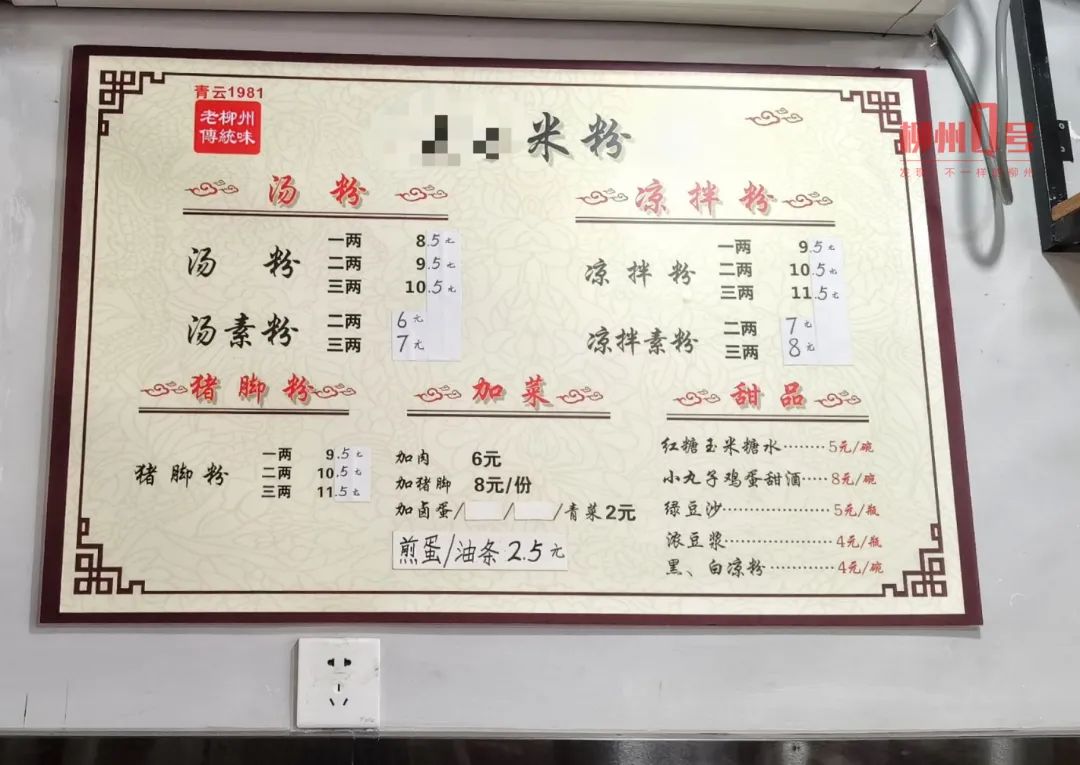 青云1981
老柳州
傳統味
米粉
柳州1号
发现 不一样的柳州
汤粉
汤粉 一两 8.5元
二两 9.5元
三两 10.5元
汤素粉 二两 6元
三两 7元
凉拌粉
凉拌粉 一两 9.5元
二两 10.5元
三两 11.5元
凉拌素粉 二两 7元
三两 8元
猪脚粉
猪脚粉 一两 9.5元
二两 10.5元
三两 11.5元
加菜
加肉 6元
加猪脚 8元/份
加卤蛋/ / /青菜2元
煎蛋/油条2.5元
甜品
红糖玉米糖水········5元/碗
小丸子鸡蛋甜酒·····8元/碗
绿豆沙·················5元/瓶
浓豆浆·················4元/瓶
黑、白凉粉············4元/碗